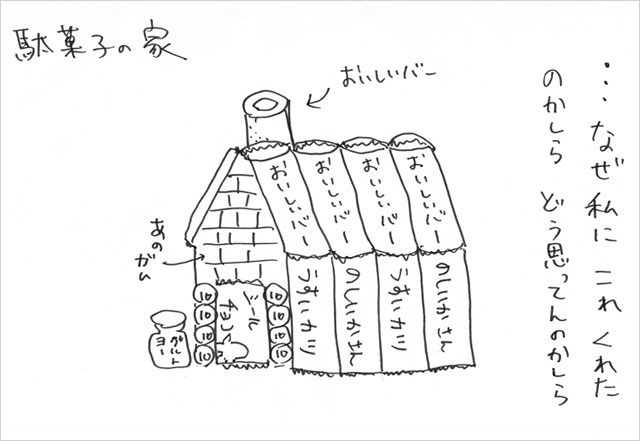 駄菓子の家
おいしいバー
…なぜ私にこれくれた
のかしら どう思ってんのかしら
あのガム
おいしいバー
おいしいバー
おいしいバー
おいしいバー
うすいカツ
のしいかさん
うすいカツ
のしいかさん
シール
チョコ
ヨー
グルト